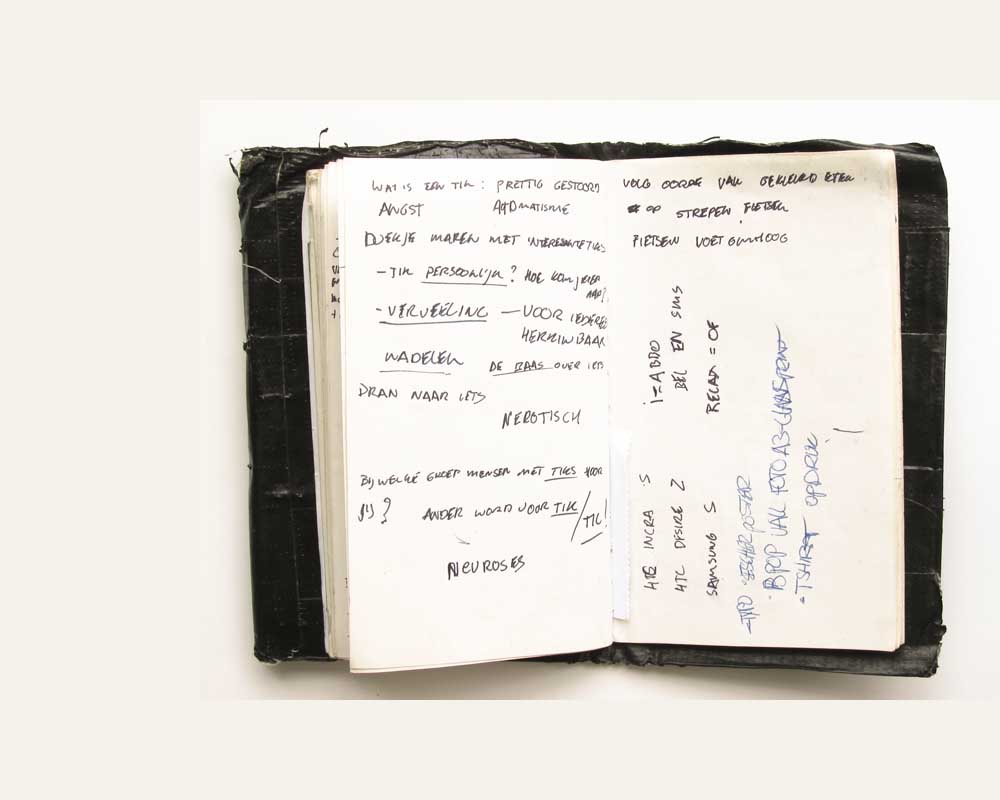 WAT IS EEN TIK : PRETTIG GESTOORD
ANGST
MAKEN MET
- TIK PERSOONLIJK? HOE KOM JE ER AAN?
- VERVELING — VOOR IEDEREEN
HERKENBAAR
NADELEN DE BAAS OVER IETS
DRAN NAAR IETS
NEROTISCH
BIJ WELKE GROEP MENSEN MET TIKS HOOR
JIJ?
ANDER WORD VOOR TIK/TIC!
NEUROSES
VOLG ORDE VAN GEKLEURD ETEN
OP STREPEN FIETSEN
FIETSEN VOET OMHOOG
BEL EN SMS
= OF
HTC INCRA S
HTC DESIRE Z
SAMSUNG S
POSTER
VAN FOTO A3
- TSHIRT OPDRUK